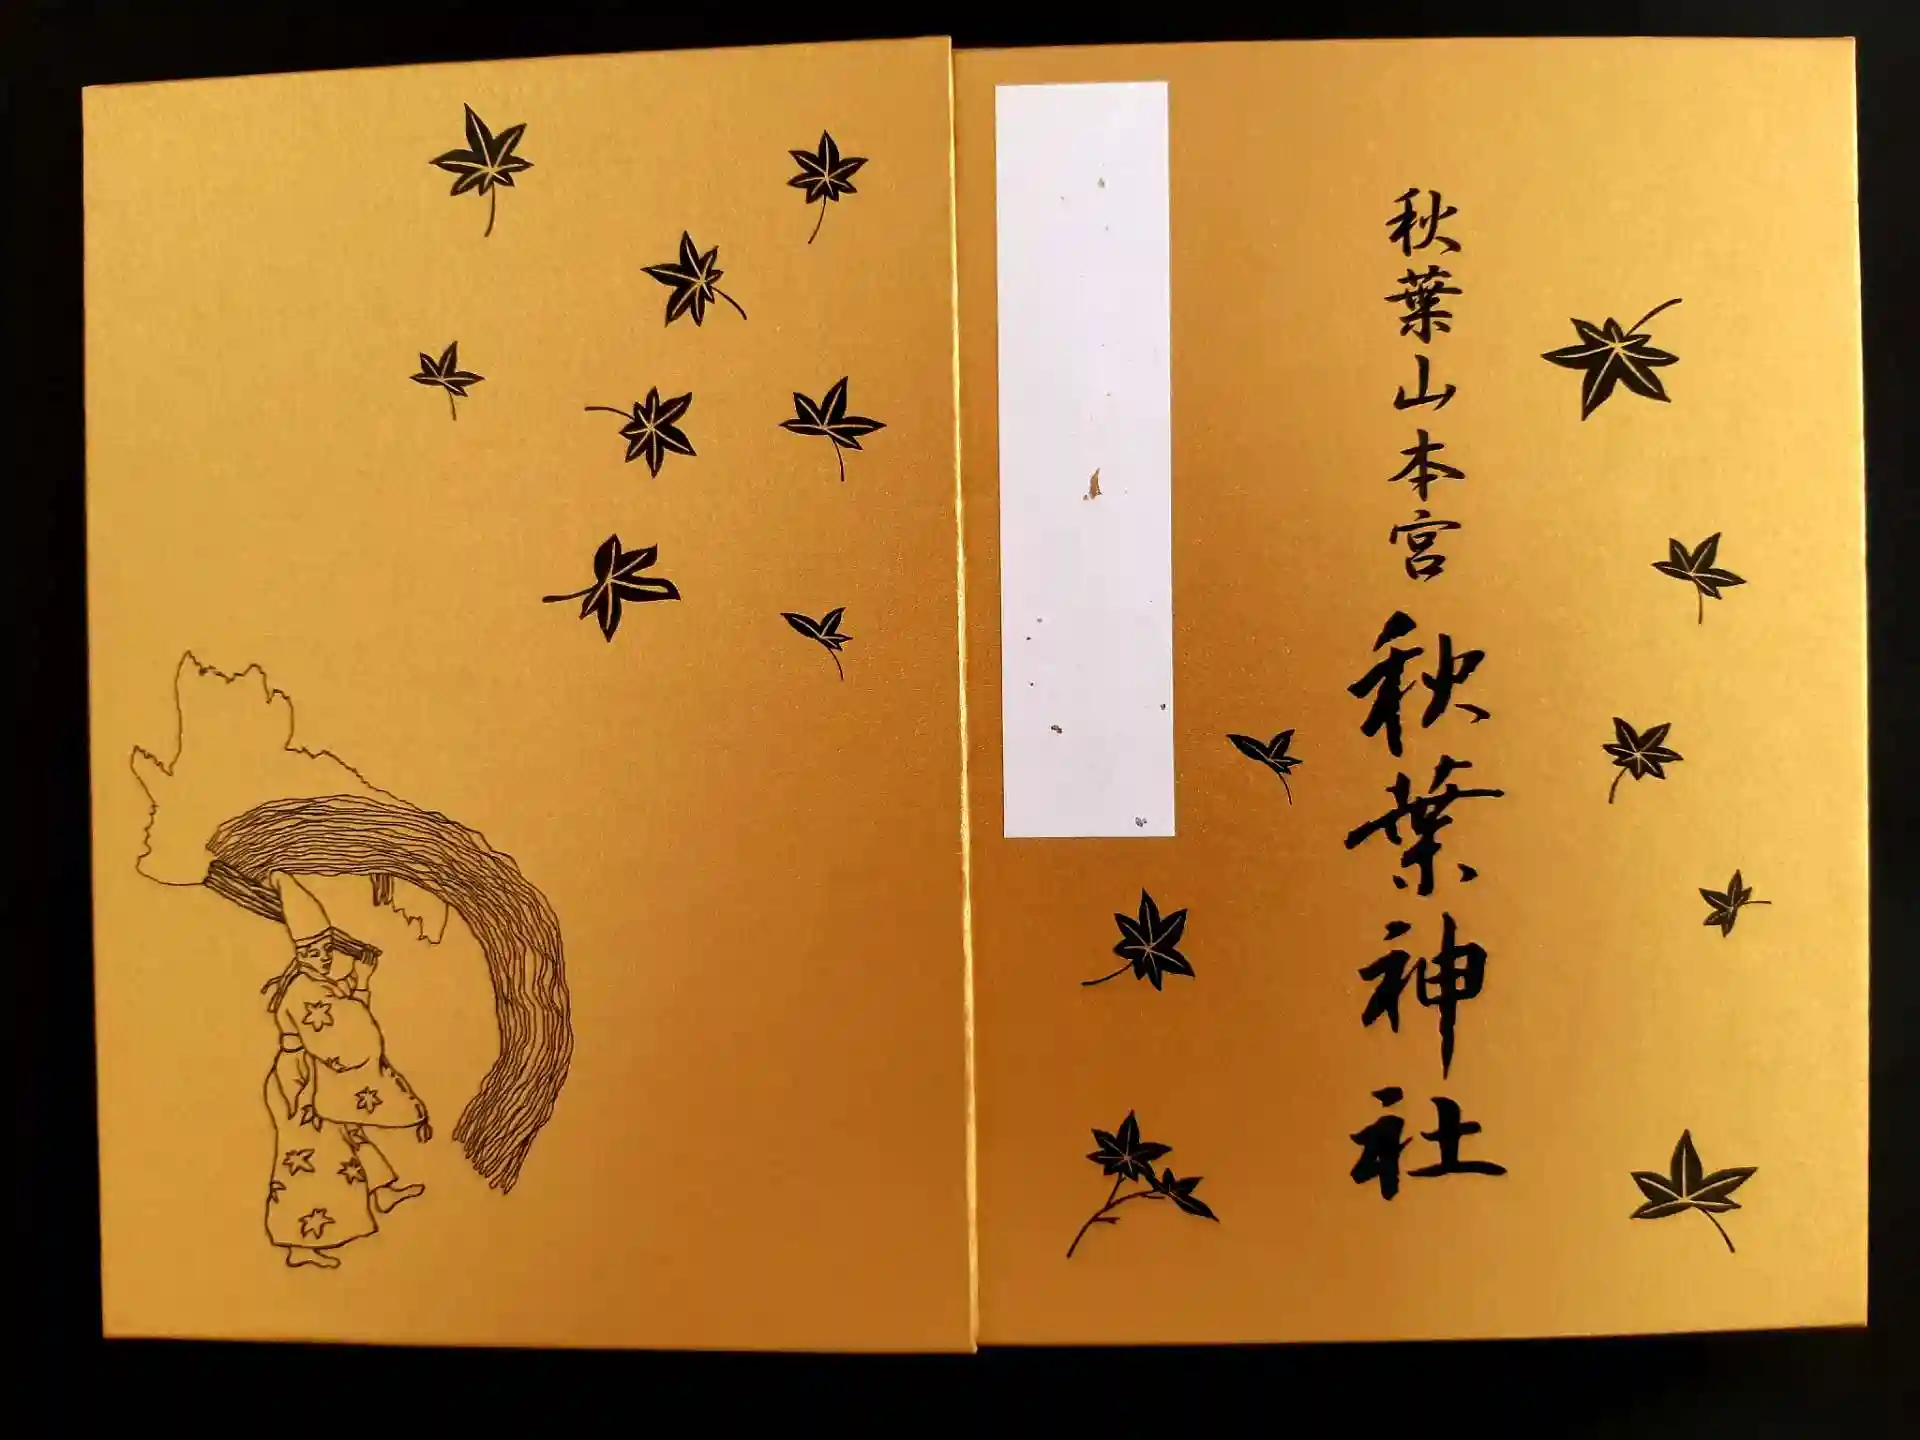 秋葉山本宮
秋葉神社